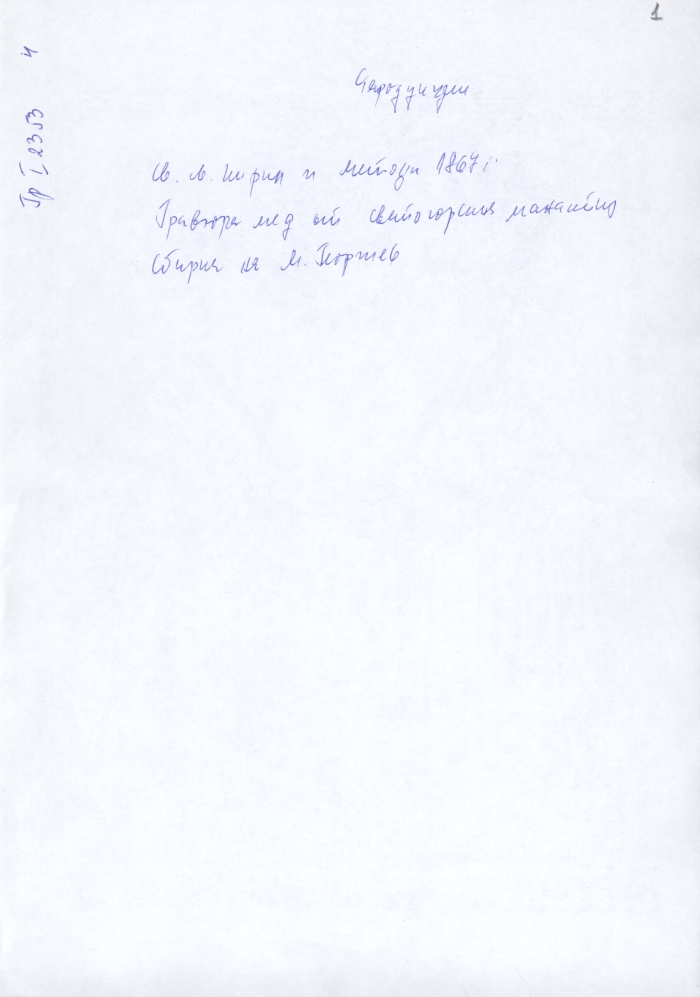 1
Гр I 2353 ч
Св. Св. Кирил и Методи 1867 г.
Гравюра мед от светогорския манастир
Сбирка на М. Георгиев